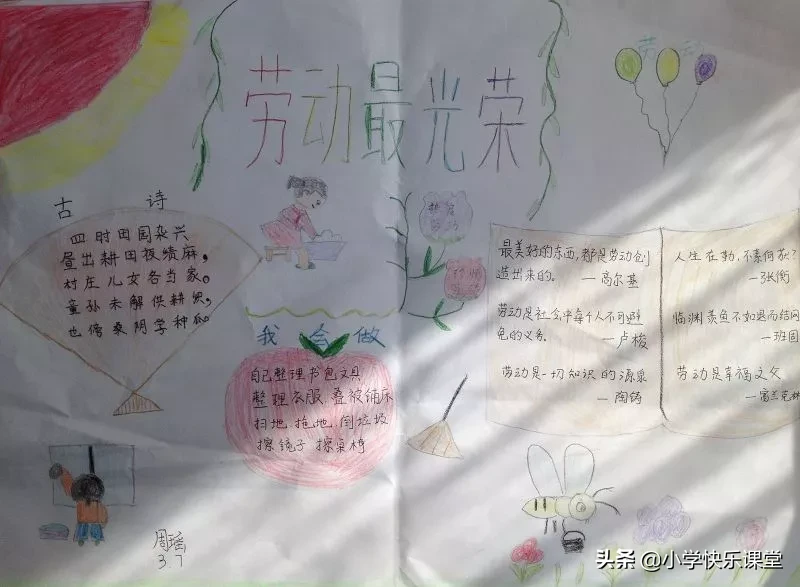 劳动最光荣
古 诗
四时田园杂兴
昼出耕田夜绩麻,
村庄儿女各当家。
童孙未解供耕织,
也傍桑阴学种瓜。
热爱
劳动
我会做
自己整理书包文具
整理衣服 叠被铺床
扫地 拖地 倒垃圾
擦镜子 擦桌椅
最美好的东西,都是劳动创
造出来的。 —高尔基
劳动是社会中每个人不可避
免的义务。 —卢梭
劳动是一切知识的源泉
—陶铸
人生在勤,不索何获?
—张衡
临渊羡鱼不如退而结网
—班固
劳动是幸福之父
—富兰克林
周瑶
3.7
头条 @小学快乐课堂